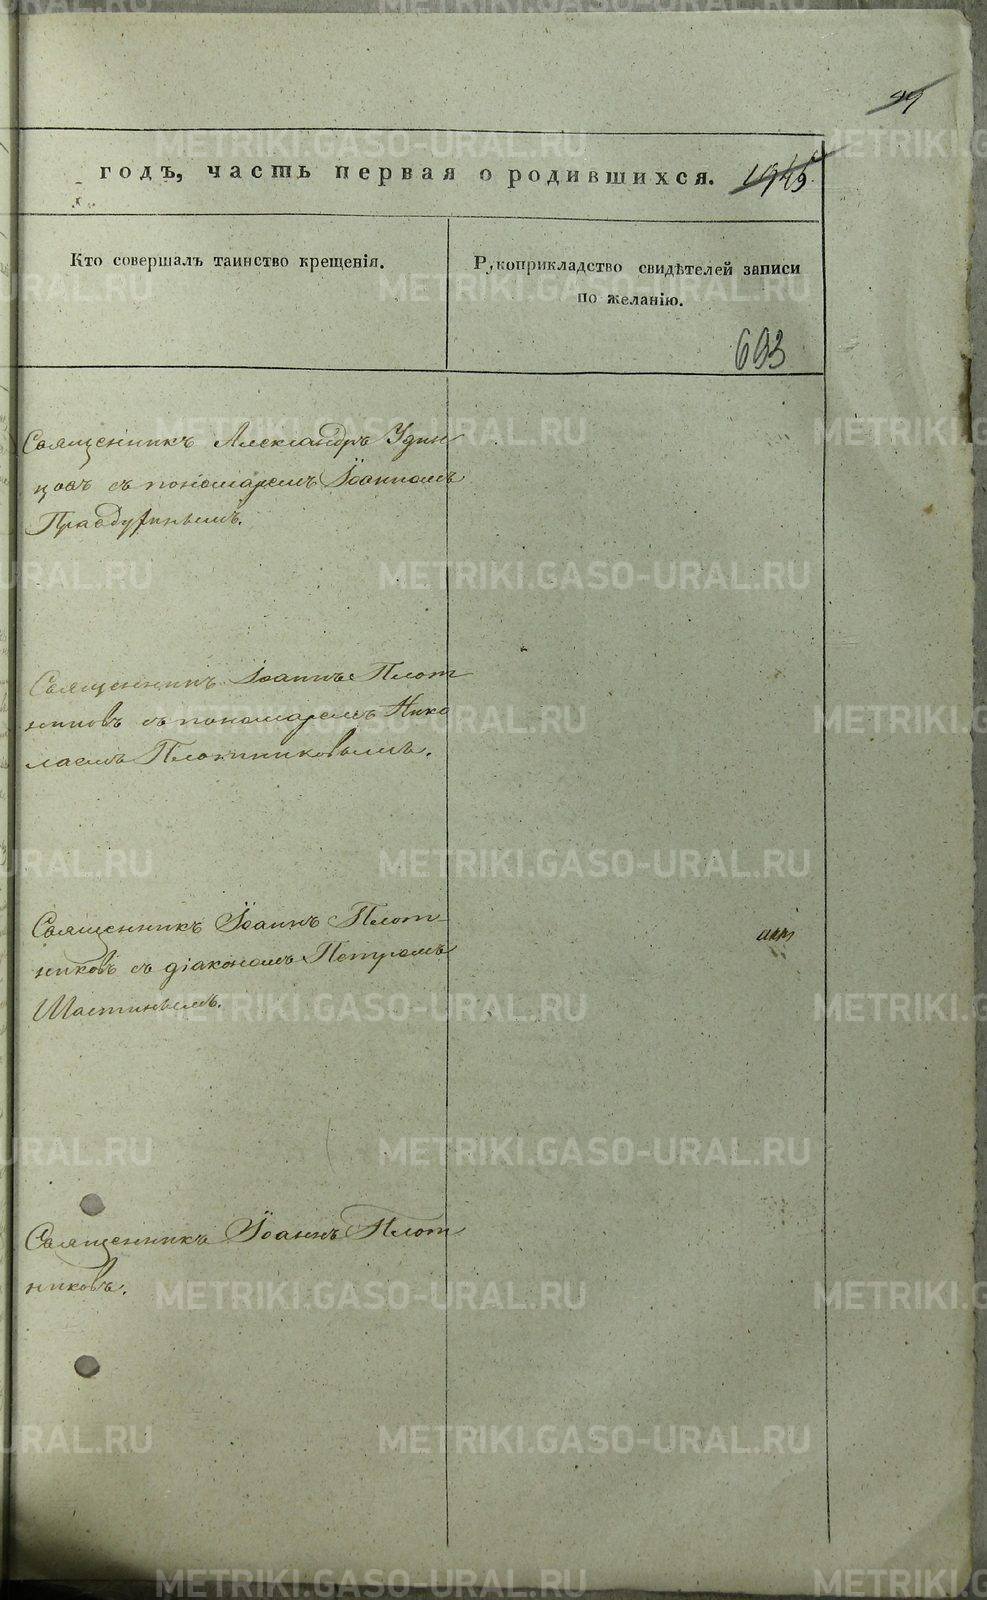 99
годъ, часть первая о родившихся. 1945
Кто совершалъ таинство крещенія.
Рукоприкладство свидѣтелей записи
по желанію.
693
Священникъ Александръ Удин
цовъ съ пономаремъ Іоанномъ
Правдухинымъ.
Священникъ Іоаннъ Плот
никовъ съ пономаремъ Нико
лаемъ Плотниковымъ.
Священникъ Іоаннъ Плот-
никовъ съ діакономъ Петромъ
Шастинымъ.
Священникъ Іоаннъ Плот
никовъ.
METRIKI.GASO-URAL.RU